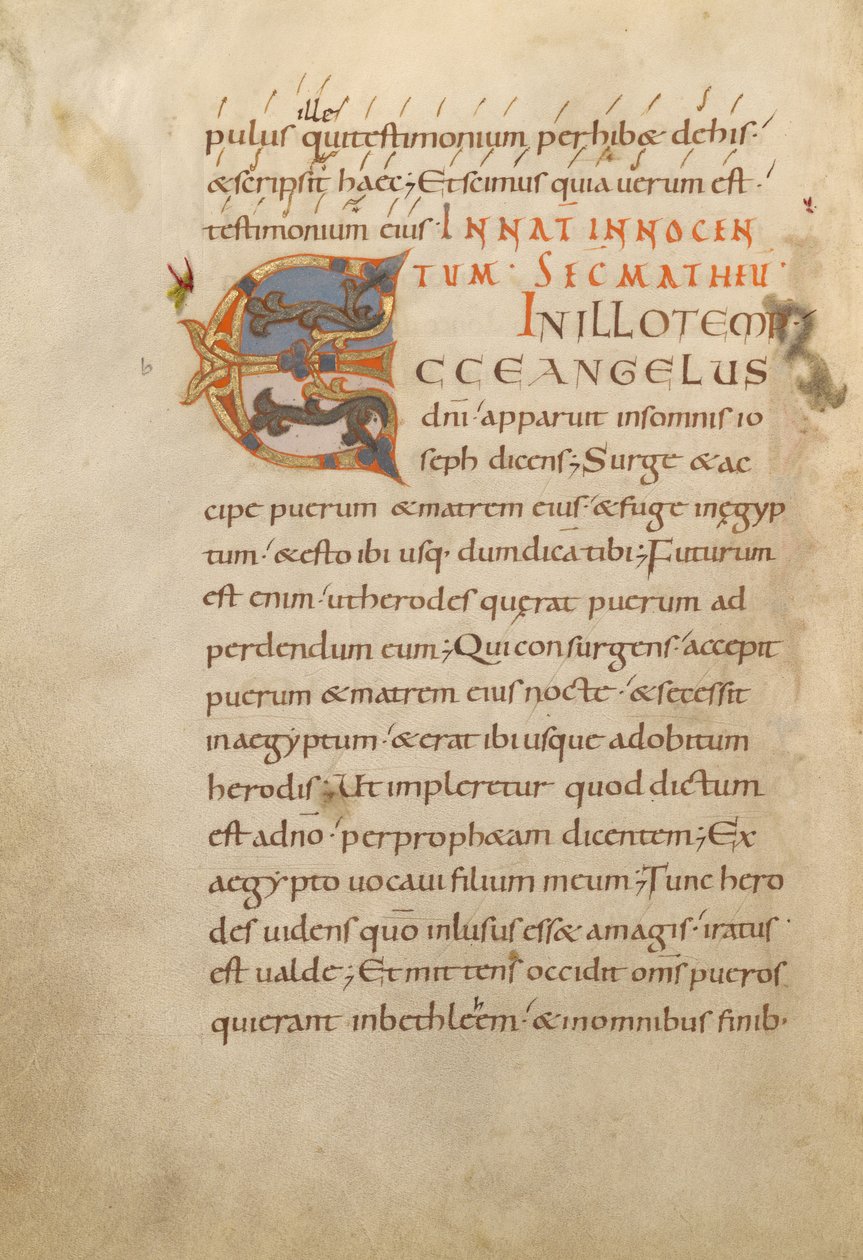 ille
pulus qui testimonium perhib& dehis·
&scripsit haec; Etscimus quia uerum est·
testimonium eius· INNAT̅ INNOCEN
TUM· SEC̅ MATHEU·
IN ILLO TEMP·
ECCE ANGELUS
dn̄i· apparuit insomnis io
seph dicens; Surge &ac
cipe puerum &matrem eius· &fuge inęgyp
tum· &esto ibi usq· dumdicā tibi; Futurum
est enim· utherodes quęrat puerum ad
perdendum eum; Qui consurgens· accepit
puerum &matrem eius nocte· &secessit
inaegyptum· &erat ibi usque adobitum
herodis; Ut impleretur quod dictum
est adn̄o· perproph&am dicentem; Ex
aegypto uocaui filium meum; Tunc hero
des uidens quō inlusus ess& amagis· iratus
est ualde; Et mittens occidit om̄s pueros
quierant inbethleem· &inomnibus finib·
h
b